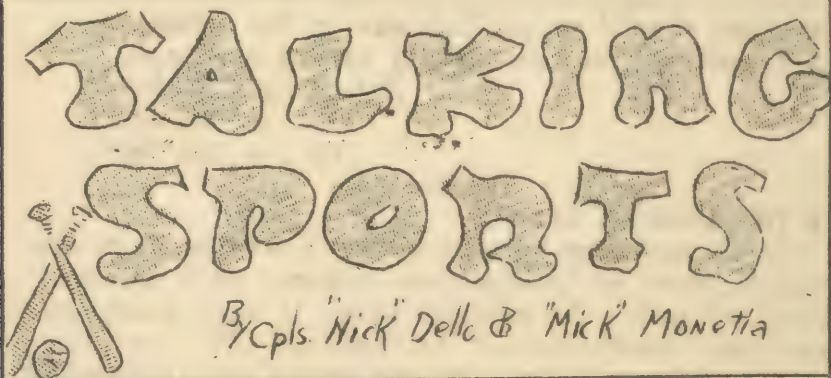 TALKING
SPORTS
By Cpls. "Nick" Dello & "Mick" Monetta